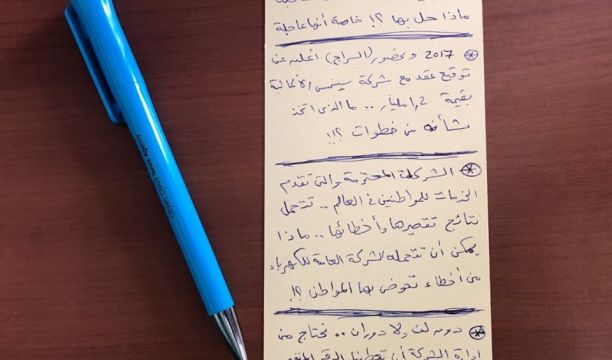 ماذا حل بها ؟! خاصة أنها عاجلة
2017 وبحضور (السراج) أعلن عن
توقيع عقد مع شركة سيمنس الألمانية
بقيمة 2,1 مليار .. ما الذي اتخذ
بشأنه من خطوات ؟!!
الشركة المحترمة والتي تقدم
الخدمات للمواطنين في العالم .. تتحمل
نتائج تقصيرها وأخطائها .. ماذا
يمكن أن تتحمله الشركة العامة للكهرباء
من أخطاء تعوض بها المواطن ؟!!
دون لف ولا دوران .. نحتاج من
إدارة الشركة أن تعطينا
Libyan Cloud News Agency